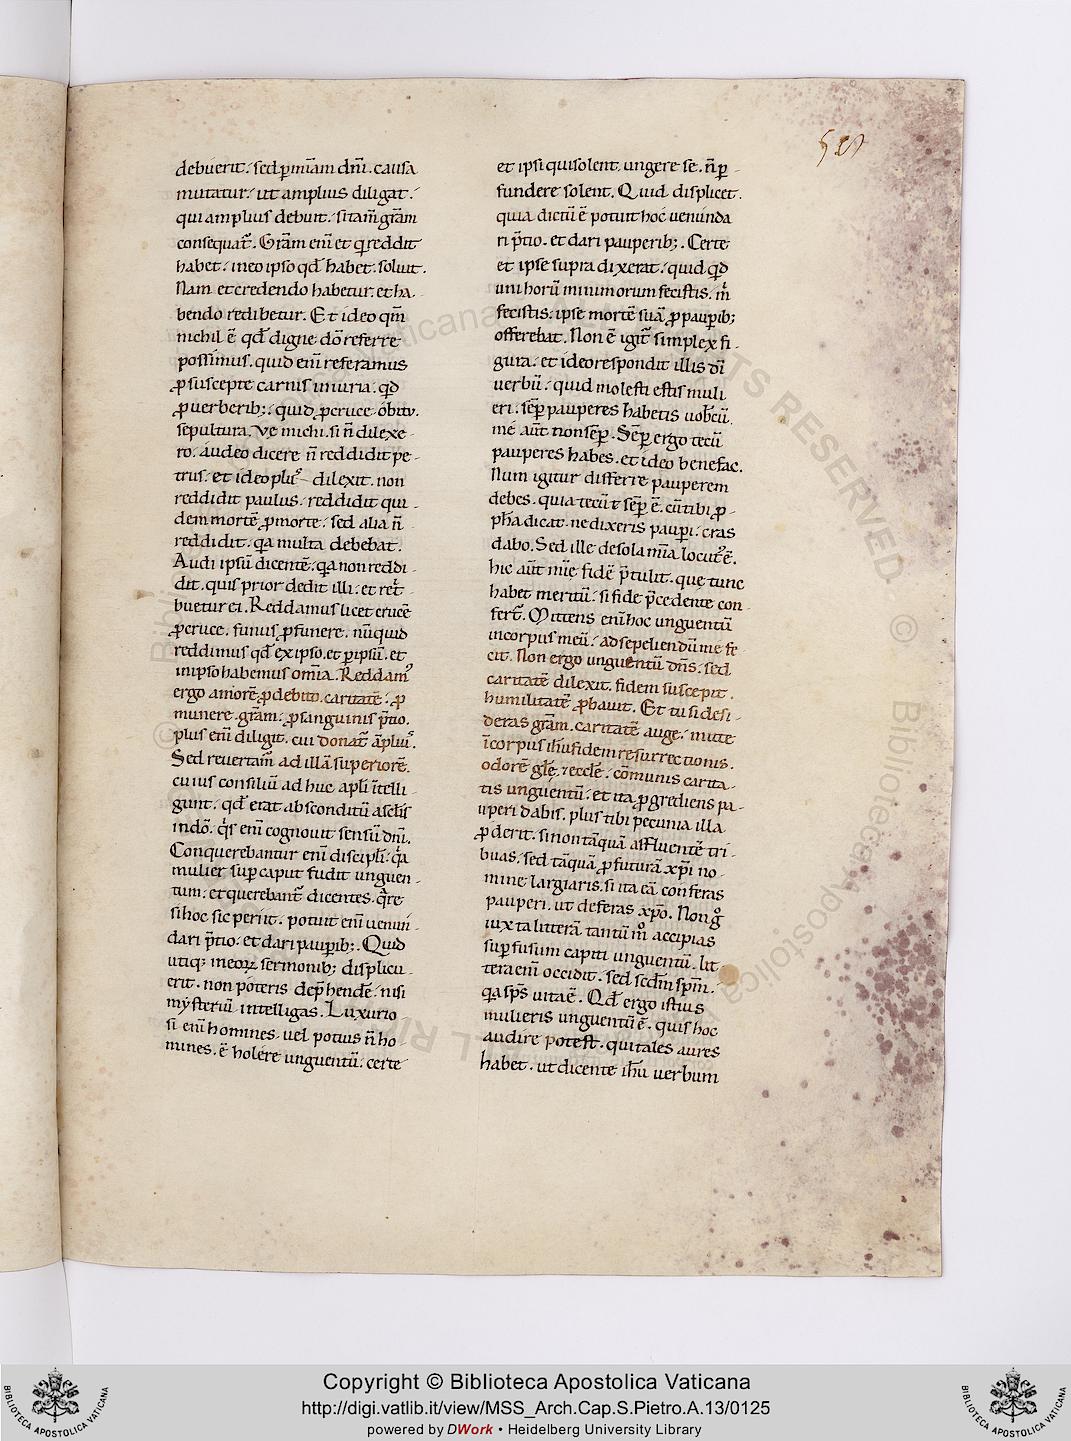 529
debuerit. sed p misam dni. causa
mutatur. ut amplius diligat.
qui amplius debuit. si tam̄ grām
consequat̄. Grām eni et q reddit
habet. in eo ipso qd̄ habet. soluit.
Nam et credendo habetur. et ha-
bendo redibetur. Et ideo qm̄
nichil ē qd̄ digne dō referre
possimus. quid eni referamus
p suscepte carnis iniuria. qd
p uerberib;. quid p cruce. obitu.
sepultura. Ve michi. si n̄ dilexe-
ro. Audeo dicere n̄ reddidit pe-
trus. et ideo plus dilexit. non
reddidit paulus. reddidit qui-
dem mortē p morte. sed alia n̄
reddidit. qa multa debebat.
Audi ipsū dicentē. qa non reddi-
dit. quis prior dedit illi. et ret̄-
buetur ei. Reddamus licet crucē
p cruce. funus p funere. nūquid
reddimus qd̄ ex ipso. et p ipsū. et
in ipso habemus omīa. Reddam9
ergo amorē p debito. caritatē. p
munere. grām. p sanguinis p̄tio.
plus eni diligit. cui donat̄ āpliu9.
Sed reuertam̄ ad illā superiorē.
cuius consiliū ad huc apli ītelli-
gunt. qd̄ erat absconditū a sclis
in dō. q̄s eni cognouit sensū dni.
Conquerebantur eni discipli. q̄a
mulier sup caput fudit unguen-
tum. et querebant̄ dicentes. q̄re
si hoc sic periit. potuit eni uenun-
dari p̄tio. et dari pauperib;. Quid
utiq; meorꝝ sermonib; displicu-
erit. non poteris dep̄hendē. nisi
mysteriū intelligas. Luxurio
si eni homines. uel potius n̄ ho-
mines. ē holere unguentū. certe
et ipsi qui solent ungere se. n̄ p-
fundere solent. Quid displicet.
quia dictū ē potuit hoc uenunda
ri p̄tio. et dari pauperib;. Certe
et ipse supra dixerat. quid qd
uni horū minimorum fecistis. m̄
fecistis. ipse mortē suā p paupib;
offerebat. Non ē igit̄ simplex fi-
gura. et ideo respondit illis dī
uerbū. quid molesti estis muli
eri. semp pauperes habetis uobcū.
me aūt non semp. Semp ergo tecū
pauperes habes. et ideo benefac.
Num igitur differre pauperem
debes. quia tecū t̄ semp ē. cū tibi p-
pha dicat. ne dixeris paupi. cras
dabo. Sed ille de sola mīa locut9 ē.
hic aūt mīe fidē p̄tulit. que tunc
habet meritū. si fide p̄cedente con-
fert̄. Mittens eni hoc unguentū
in corpus meū. ad sepeliendū me fe
cit. Non ergo unguentū dns. sed
caritatē dilexit. fidem suscepit.
humilitatē pbauit. Et tu si desi-
deras grām. caritatē auge. mitte
ī corpus ihu fidem resurrectionis.
odorē glē. ⁊ eccle. cōmunis carita-
tis unguentū. et ita pgrediens pa-
uperi dabis. plus tibi pecunia illa
pderit. si non tāquā affluentē tri-
buas. sed tāquā pfuturā xpi no-
mine largiaris. si ita eā conferas
pauperi. ut deferas xpo. Non g̊
iuxta litterā tantū m̊ accipias
supfusum capiti unguentū. lit-
tera eni occidit. sed scdm spm.
qa sps uita ē. Qd̄ ergo istius
mulieris unguentū ē. quis hoc
audire potest. qui tales aures
habet. ut dicente ihu uerbum
Copyright © Biblioteca Apostolica Vaticana
http://digi.vatlib.it/view/MSS_Arch.Cap.S.Pietro.A.13/0125
powered by DWork • Heidelberg University Library
BIBLIOTECA APOSTOLICA VATICANA
BIBLIOTECA APOSTOLICA VATICANA
© Biblioteca Apostolica Vaticana ALL RIGHTS RESERVED. © Biblioteca Apostolica Vaticana ALL RIGHTS